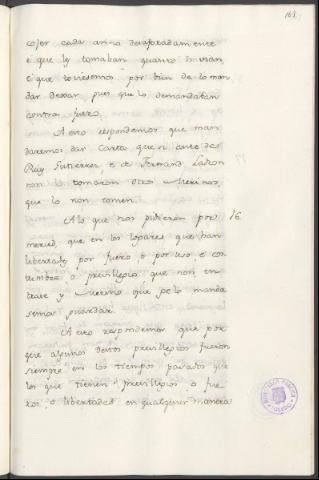 168
cojer cada anno desaforadamente
é que les tomaban quanto havian
é que toviesemos por bien de lo man
dar dexar, pues que lo demandaban
contra fuero.
A esto respondemos que man
daremos dar Carta que si ante de
Ruy Gutierrez, é de Fernand Ladron
non lo tomaron otros Merinos,
que lo non tomen.
A lo que nos pidieron por 16
merced, que en los logares que han
libertades por fuero, o por uso, e cos
tumbre, o previllegio que non en
trase y Merino que ge lo manda
semos guardar.
A esto respondemos que por
que algunos destos previllegios fueron
siempre en los tiempos pasados que
los que tienen previllegios o fue
ros, o libertades en qualquier manera